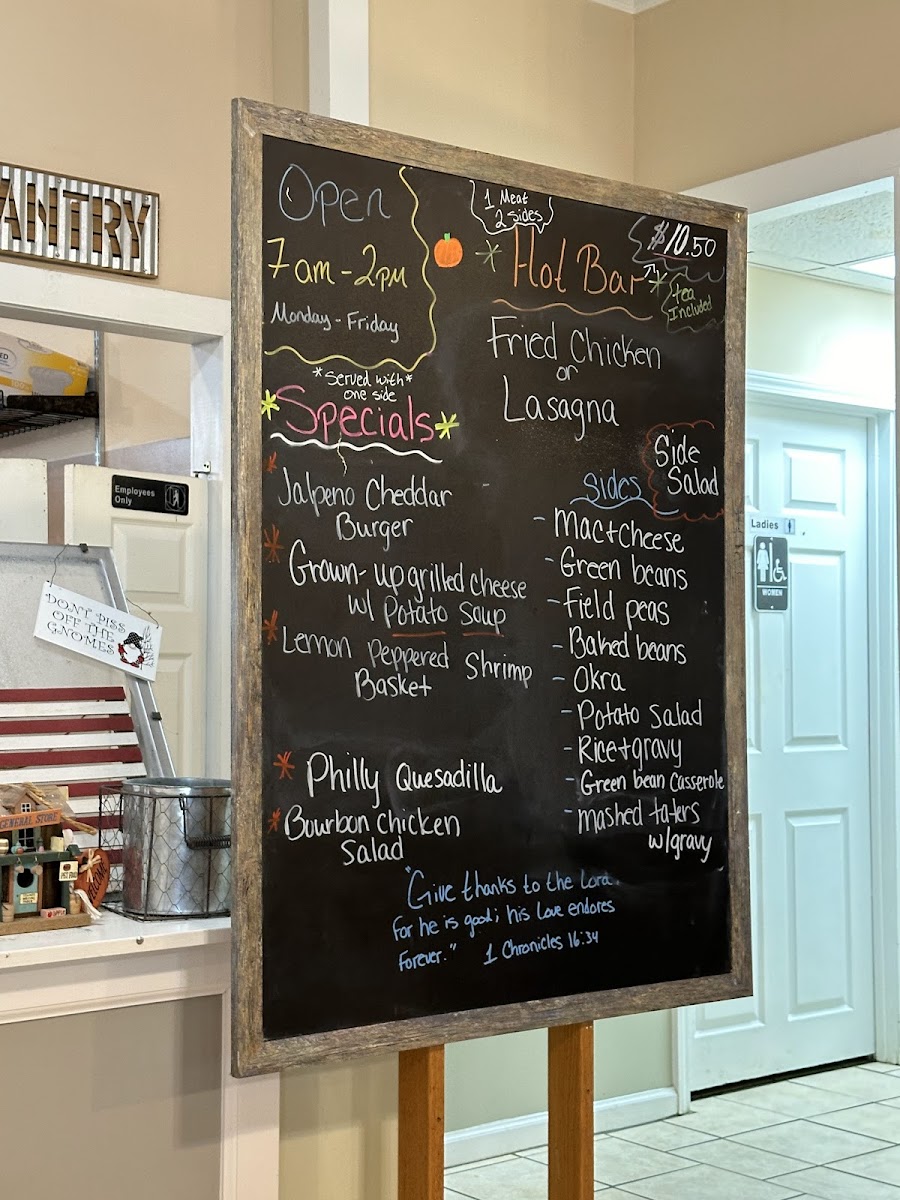 ANTRY
Open
7am-2pm
Monday-Friday
1 Meat
2 sides
Hot Bar
$10.50
tea
Included
Fried Chicken
or
Lasagna
*Served with*
one side
Specials
Jalpeno Cheddar
Burger
Grown-up grilled cheese
w/ Potato Soup
Lemon Peppered Shrimp
Basket
Philly Quesadilla
Bourbon Chicken
Salad
Side
Salad
Sides
- Mac+Cheese
- Green beans
- Field peas
- Baked beans
- Okra
- Potato Salad
- Rice+gravy
- Green bean Casserole
- mashed taters
w/gravy
"Give thanks to the Lord,
for he is good; his Love endores
Forever." 1 Chronicles 16:34
Employees
Only
DON'T PISS
OFF THE
GNOMES
GENERAL STORE
Ladies
WOMEN